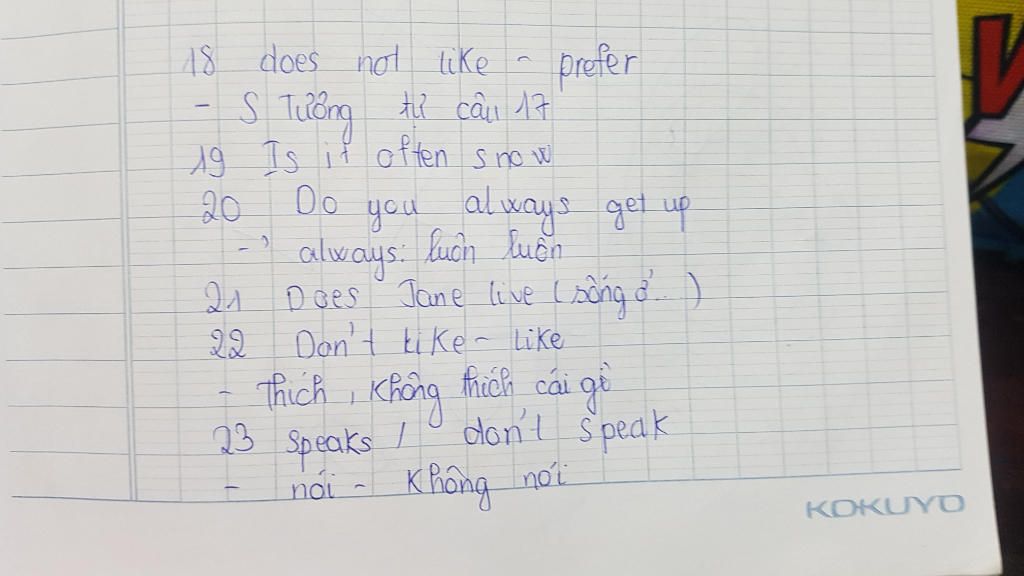 18 does not like - prefer
- S Tương tự câu 17
19 Is it often snow
20 Do you always get up
-> always: luôn luôn
21 Does Jane live (sống ở...)
22 Don't like - like
- Thích, không thích cái gì
23 speaks / don't speak
- nói - không nói
KOKUYO